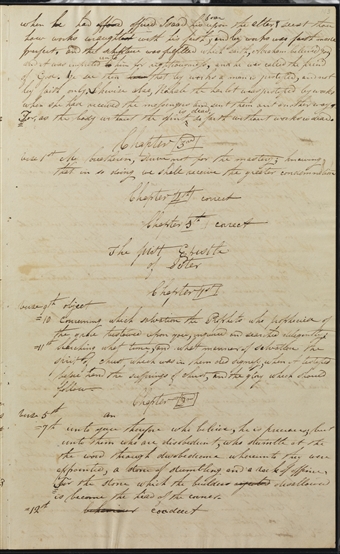 when he had offered Isaac his son upon the alter, seest thou
how works wrought with his faith, and by works was faith made
perfect, and the scripture was fulfilled which saith, Abraham believed god
and it was imputed unto him for righteousness, and he was called the friend
of God, ye see then that by works a man is justified, and not
by faith only, likewise also, Rahab the harlot was justified by works
when she had received the messengers & sent them out another way
For, as the body without the spirit is dead so faith without works is dead
Chapter 3rd
verse 1st My brethren, strive not for the mastery, knowing
that in so doing we shall receive the greater condemnation
Chapter 4th correct
Chapter 5th correct
The first Epistle
of Peter
Chapter 1st
verse 9th object
=10 Concerning which salvation the Prophets who prophesied of
the grace bestowed upon you, inquired and searched diligently
=11th searching what time, and what manner of salvation the
spirit of christ which was in them did signify, when it testified
before hand the sufferings of christ, and the glory which should
follow
Chapter 2nd
verse 5th an
=7th unto you therefore who believe, he is precious, but
unto them who are disobedient, who stumble at
the word through disobedience whereunto they were
appointed, a stone of stumbling and a rock of offence
For the stone which the builders disallowed
is become the head of the corner
=12th conduct